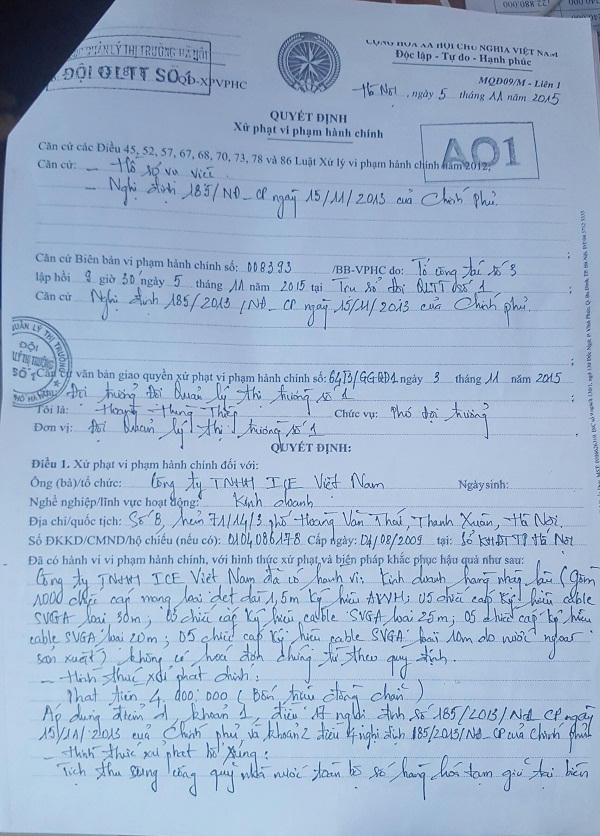 CỤC QUẢN LÝ THỊ TRƯỜNG HÀ NỘI
ĐỘI QLTT SỐ 1 QĐ-XPVPHC
CỘNG HÒA XÃ HỘI CHỦ NGHĨA VIỆT NAM
Độc lập - Tự do - Hạnh phúc
MQĐ09/M - Liên 1
Hà Nội, ngày 5 tháng 11 năm 2015
QUYẾT ĐỊNH
Xử phạt vi phạm hành chính
A01
Căn cứ các Điều 45, 52, 57, 67, 68, 70, 73, 78 và 86 Luật Xử lý vi phạm hành chính năm 2012;
Căn cứ: - Hồ sơ vụ việc
- Nghị định 185/NĐ-CP ngày 15/11/2013 của Chính phủ.
Căn cứ Biên bản vi phạm hành chính số: 008393 /BB-VPHC do: Tổ công tác số 3
lập hồi 9 giờ 30 ngày 5 tháng 11 năm 2015 tại Trụ sở đội QLTT số 1
Căn cứ Nghị định 185/2013/NĐ-CP ngày 15/11/2013 của Chính phủ.
Căn cứ văn bản giao quyền xử phạt vi phạm hành chính số: ngày 3 tháng 11 năm 2015
Đội trưởng Đội Quản lý thị trường số 1
Tôi là: Hoàng Hưng Thiệp Chức vụ: Phó đội trưởng
Đơn vị: Đội Quản lý thị trường số 1
QUYẾT ĐỊNH:
Điều 1. Xử phạt vi phạm hành chính đối với:
Ông (bà)/tổ chức: Công ty TNHH ICE Việt Nam Ngày sinh:
Nghề nghiệp/lĩnh vực hoạt động: Kinh doanh
Địa chỉ/quốc tịch: Số 8, hẻm 71/14/3 phố Hoàng Văn Thái, Thanh Xuân, Hà Nội.
Số ĐKKD/CMND/hộ chiếu (nếu có): 0104086178 Cấp ngày: 04/08/2009 tại: Sở KHĐT TP Hà Nội
Đã có hành vi vi phạm hành chính, với hình thức xử phạt và biện pháp khắc phục hậu quả như sau:
Công ty TNHH ICE Việt Nam đã có hành vi: Kinh doanh hàng nhập lậu (gồm
1000 chiếc cáp mạng loại dẹt dài 1,5m ký hiệu AWM; 05 chiếc cáp ký hiệu cable
SVGA loại 30m; 05 chiếc cáp ký hiệu cable SVGA loại 25m; 05 chiếc cáp ký hiệu
cable SVGA loại 20m; 05 chiếc cáp ký hiệu cable SVGA loại 10m do nước ngoài
sản xuất) không có hoá đơn chứng từ theo quy định.
- Hình thức xử phạt chính:
Phạt tiền 4,000,000 (Bốn triệu đồng chẵn)
Áp dụng điểm d, khoản 1, điều 17 nghị định số 185/2013/NĐ-CP ngày
15/11/2013 của Chính phủ và khoản 2 điều 4 nghị định 185/2013/NĐ-CP của Chính phủ
- Hình thức xử phạt bổ sung:
Tịch thu sung công quỹ nhà nước toàn bộ số hàng hoá tạm giữ tại biên